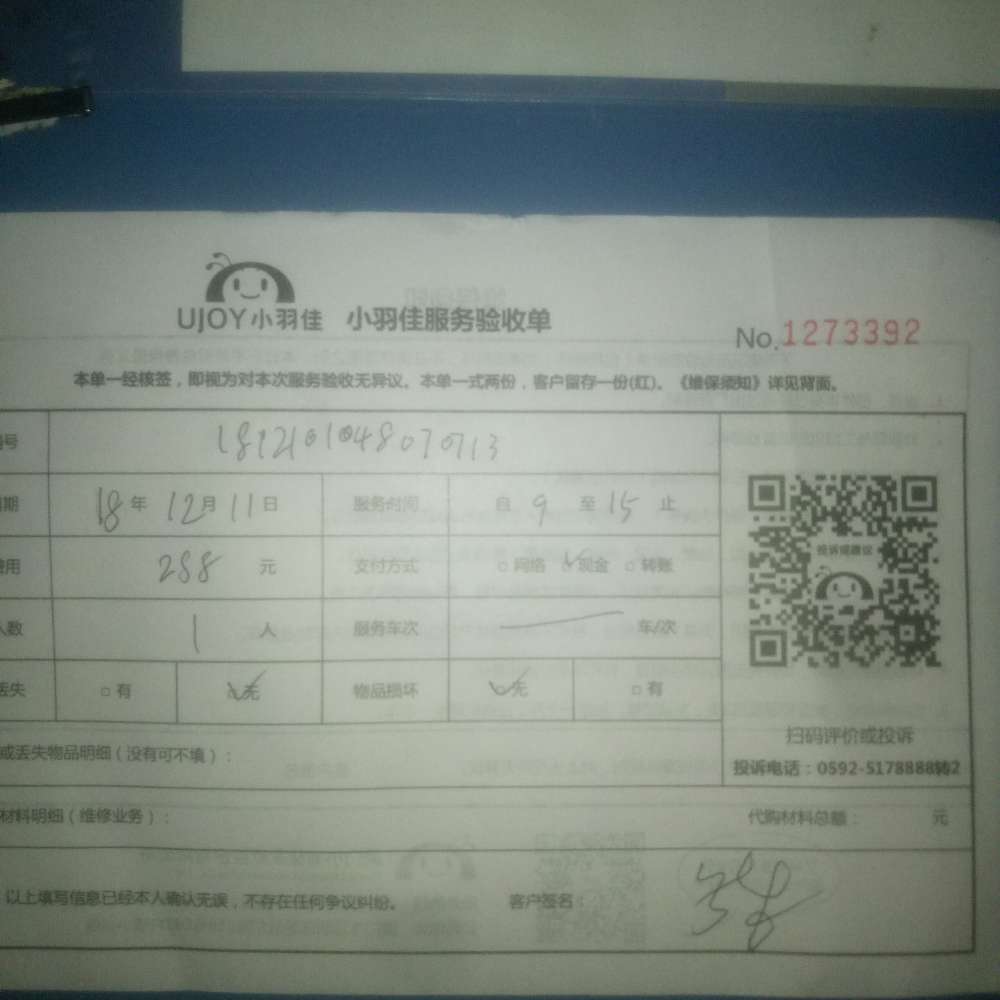 UJOY小羽佳 小羽佳服务验收单
No.1273392
本单一经核签，即视为对本次服务验收无异议。本单一式两份，客户留存一份(红)。《维保须知》详见背面。
号
期 18年12月11日 服务时间 自9至15止
用 288 元 支付方式 □网络 ☑现金 □转账
人数 1 人 服务车次 — 车/次
丢失 □有 ☑无 物品损坏 ☑无 □有
投诉或建议
扫码评价或投诉
投诉电话：0592-5178888转2
或丢失物品明细（没有可不填）：
材料明细（维修业务）： 代购材料总额： 元
以上填写信息已经本人确认无误，不存在任何争议纠纷。 客户签名：